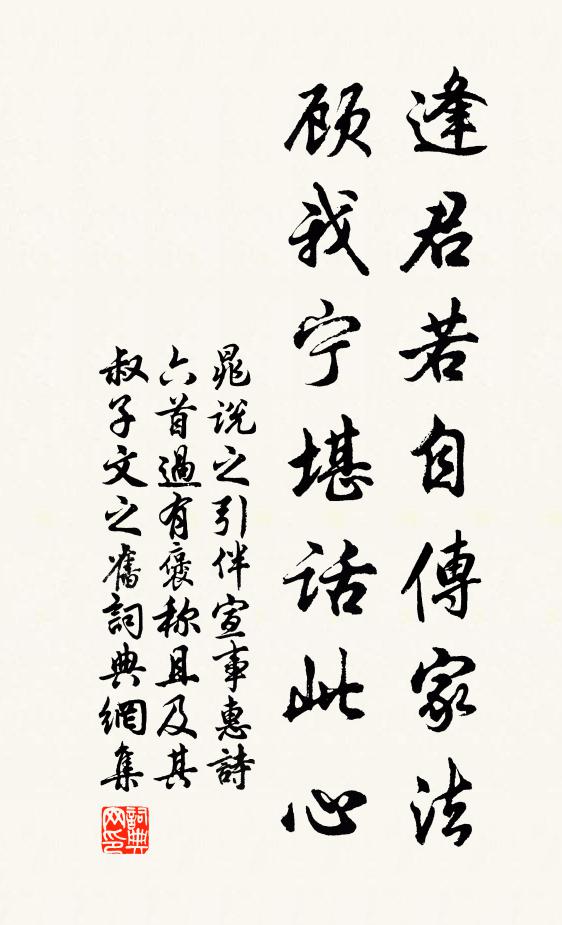 逢君若自傳家法
顾我宁堪话此心
晁说之引伴宣事惠詩
六首過有褒称且及其
叔子文之舊詞典網集
詞典
网印